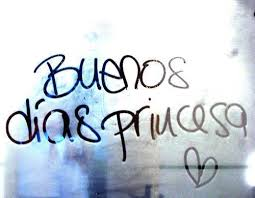 Buenos
días princesa